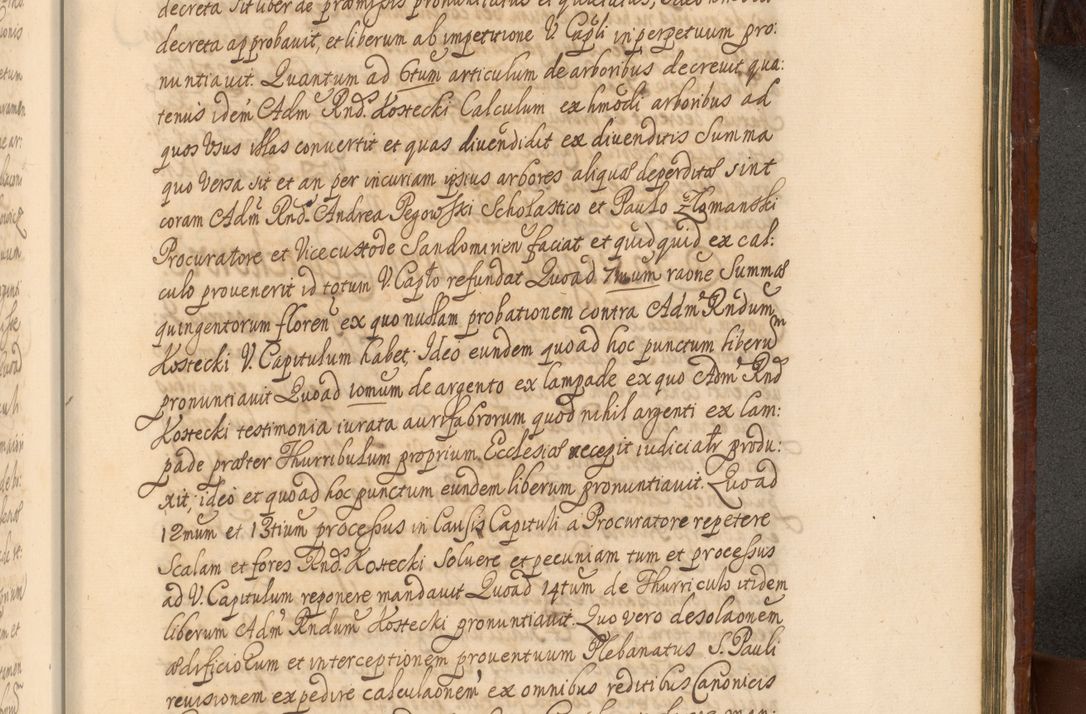 decreta sit liber de præmissis pronuntiatus et quietatus, ideo
decreta approbauit, et liberum ab impetitione V. Capli in perpetuum pro:
nuntiauit. Quantum ad 6tum articulum de arboribus decreuit qua:
tenus idem Adm Rnd. Kostecki Calculum ex hmodi arboribus ad
quos Usus illas conuertit et quas diuendidit ex diuenditis Summa
quo Versa sit et an per incuriam ipsius arbores aliquas deperditæ sint
coram Adm Rnd. Andrea Pegowski Scholastico et Paulo Złomanski
Procuratore et Vicecustode Sandomirien faciat et quidquid ex cal:
culo prouenerit id totum V. Capło refundat Quoad 7mum raōne Summæ
quingentorum floren ex quo nullam probationem contra Adm Rndum
Kostecki V. Capitulum habet, Ideo eundem quoad hoc punctum liberum
pronuntiauit Quoad 10mum de argento ex lampade ex quo Adm Rnd
Kostecki testimonia iurata aurifabrorum quod nihil argenti ex lam:
pade præter Thurribulum proprium Ecclesiæ recepit iudicialr produ:
xit, ideo et quoad hoc punctum eundem liberum pronuntiauit. Quoad
12mum et 13tium processus in Causis Capituli a Procuratore repetere
Scalam et fores Rnd. Kostecki soluere et pecuniam tum et processus
ad V. Capitulum reponere mandauit Quoad 14tum de Thurriculo itidem
liberum Adm Rndum Kostecki pronuntiauit. Quo vero desolaōnem
ædificiorum et interceptionem prouentuum Plebanatus S. Pauli
reuisionem expedire calculaōnem ex omnibus reditibus Canonicis